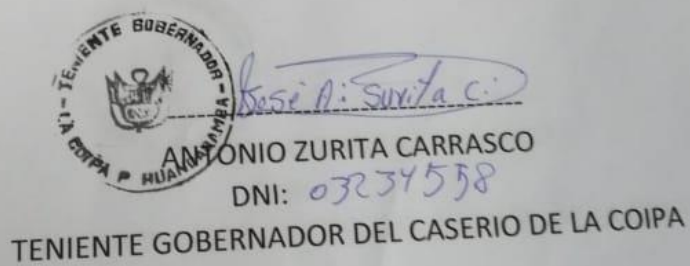 TENIENTE GOBERNADOR - LA COIPA P HUANCABAMBA
José A. Surita C.
ANTONIO ZURITA CARRASCO
DNI: 03234558
TENIENTE GOBERNADOR DEL CASERIO DE LA COIPA